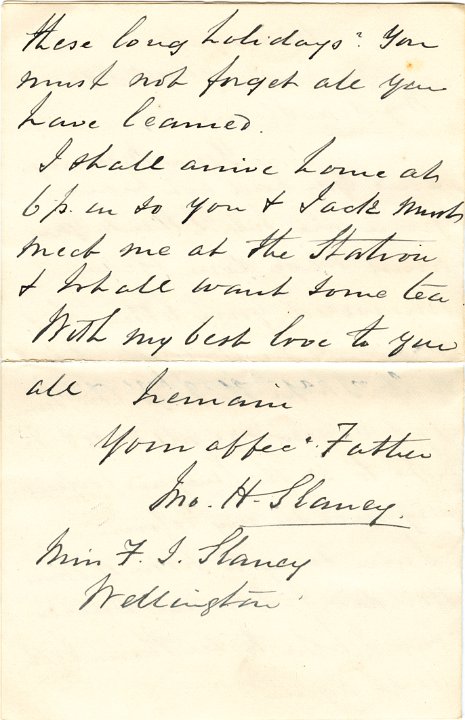 these long holidays? You
must not forget all you
have learned.
I shall arrive home at
6 p.m so you & Jack must
meet me at the Station
& I shall want some tea
With my best love to you
all I remain
Your affec^t. Father
Jno. H. Slaney.
Miss F. J. Slaney
Wellington